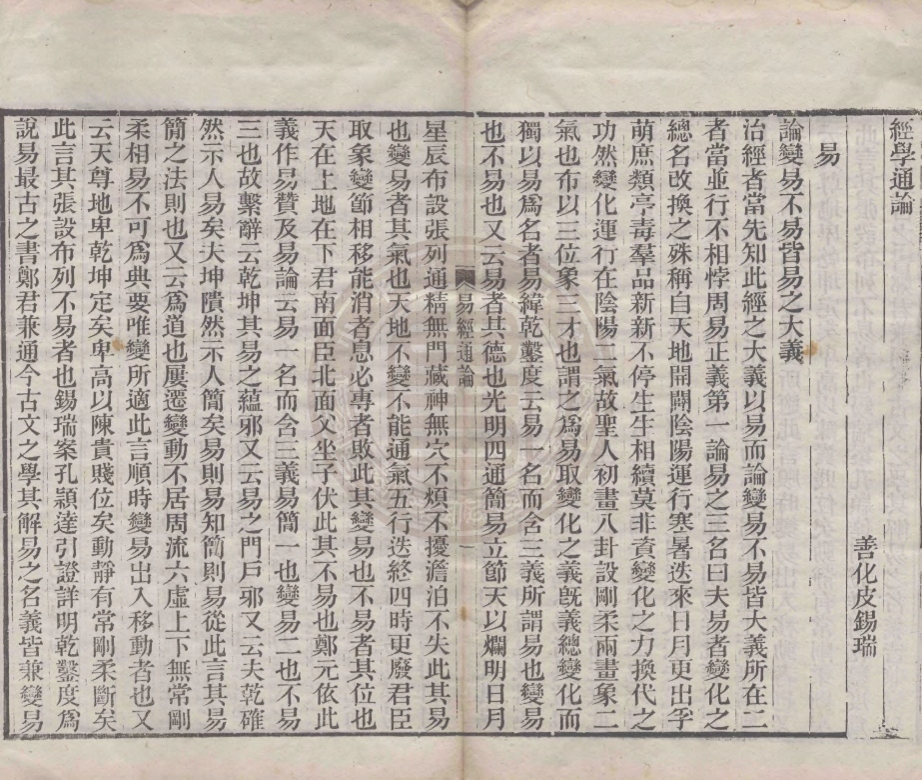 經學通論
善化皮錫瑞
易
論變易不易皆易之大義
治經者當先知此經之大義以易而論變易不易皆大義所在二
者當並行不相悖周易正義第一論易之三名曰夫易者變化之
總名改換之殊稱自天地開闢陰陽運行寒暑迭來日月更出孚
萌庶類亭毒羣品新新不停生生相續莫非資變化之力換代之
功然變化運行在陰陽二氣故聖人初畫八卦設剛柔兩畫象二
氣也布以三位象三才也謂之爲易取變化之義旣義總變化而
獨以易爲名者易緯乾鑿度云易一名而含三義所謂易也變易
也不易也又云易者其德也光明四通簡易立節天以爛明日月
易經通論
一
星辰布設張列通精無門藏神無穴不煩不擾澹泊不失此其易
也變易者其氣也天地不變不能通氣五行迭終四時更廢君臣
取象變節相移能消者息必專者敗此其變易也不易者其位也
天在上地在下君南面臣北面父坐子伏此其不易也鄭元依此
義作易贊及易論云易一名而含三義易簡一也變易二也不易
三也故繫辭云乾坤其易之蘊邪又云易之門戶邪又云夫乾確
然示人易矣夫坤隤然示人簡矣易則易知簡則易從此言其易
簡之法則也又云爲道也屢遷變動不居周流六虛上下無常剛
柔相易不可爲典要唯變所適此言順時變易出入移動者也又
云天尊地卑乾坤定矣卑高以陳貴賤位矣動靜有常剛柔斷矣
此言其張設布列不易者也錫瑞案孔穎達引證詳明乾鑿度爲
說易最古之書鄭君兼通今古文之學其解易之名義皆兼變易